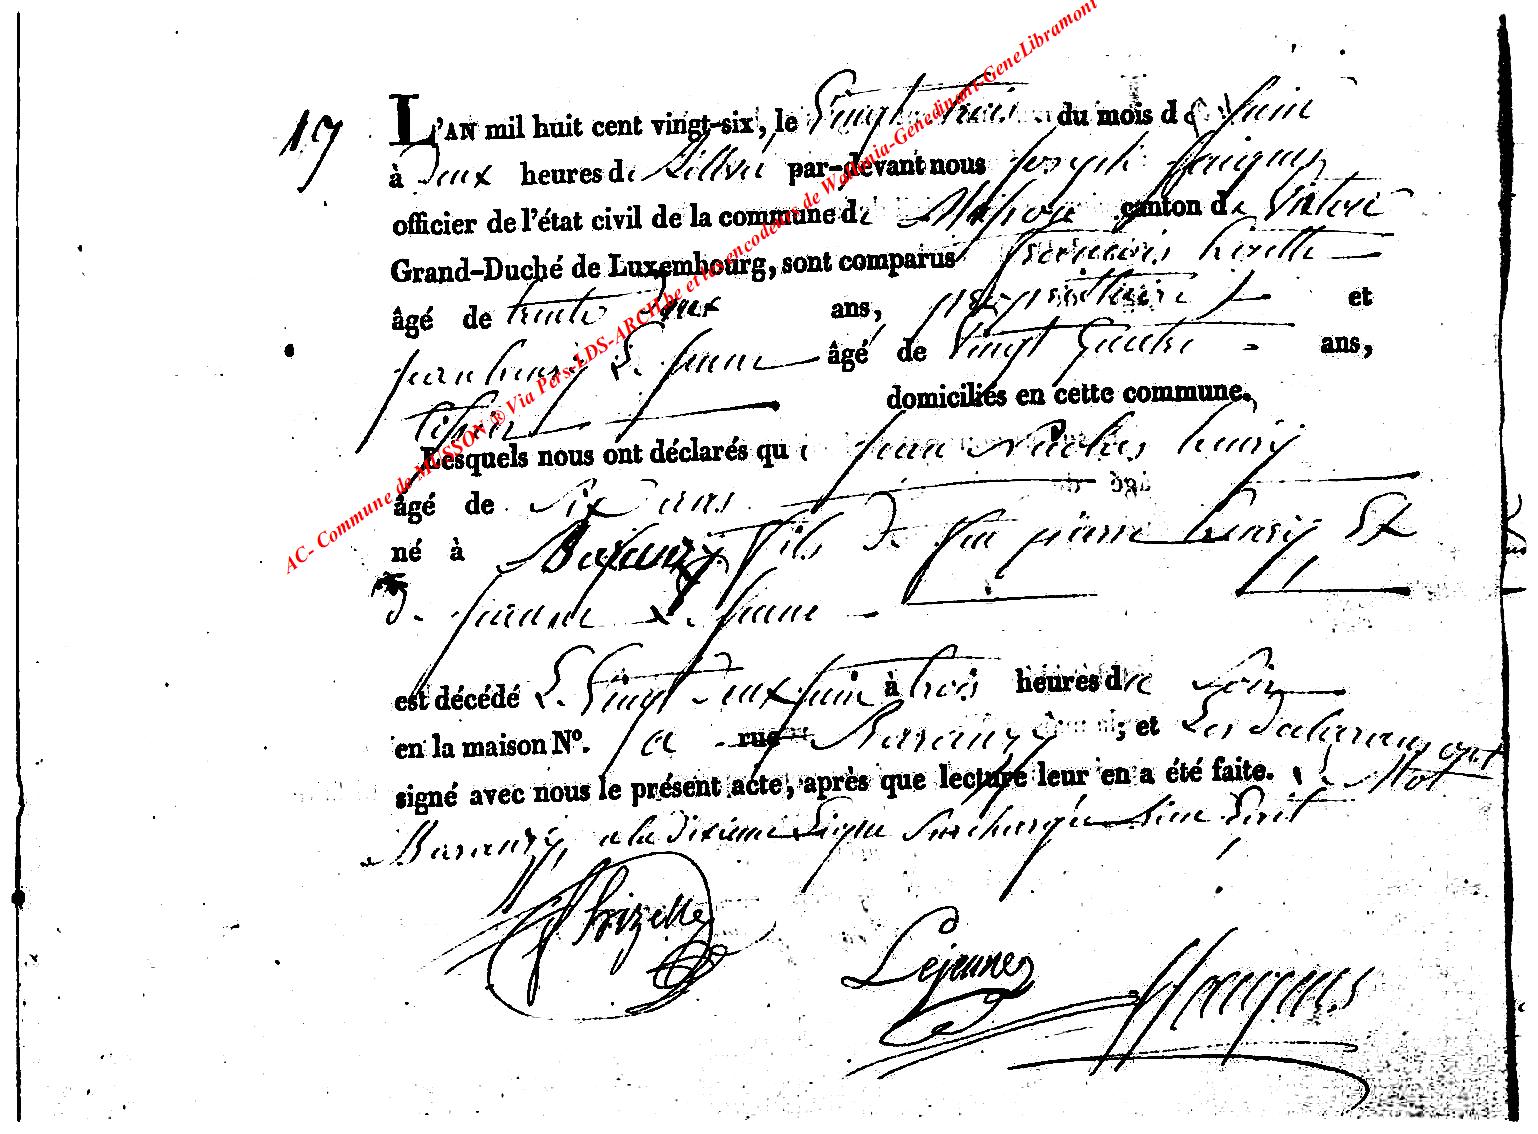 19
L'AN mil huit cent vingt-six, le Vingt trois du mois de Juin
à Deux heures de Rellevé par-devant nous Joseph
officier de l'état civil de la commune de canton de Virton
Grand-Duché de Luxembourg, sont comparus françois
âgé de trente Deux ans, propriettaire et
jean henry Le jeune âgé de Vingt Quatre ans,
domiciliés en cette commune.
Lesquels nous ont déclarés que jean Nicolas henry
âgé de Six ans
né à Baranzy fils de feu pierre henry Et
de jeanne Le jeune
est décédé Le Vingt Deux juin à trois heures de Soir
en la maison N°. a rue Baranzy ; et Les Déclarans ont
signé avec nous le présent acte, après que lecture leur en a été faite. Le Mot
Baranzy a la Dixieme Ligne Surchargé
Lejeune
AC- Commune de MUSSON ® Via Pers-LDS-ARCH.be et les encodeurs de Wallonia-Genedinant-GeneLibramont